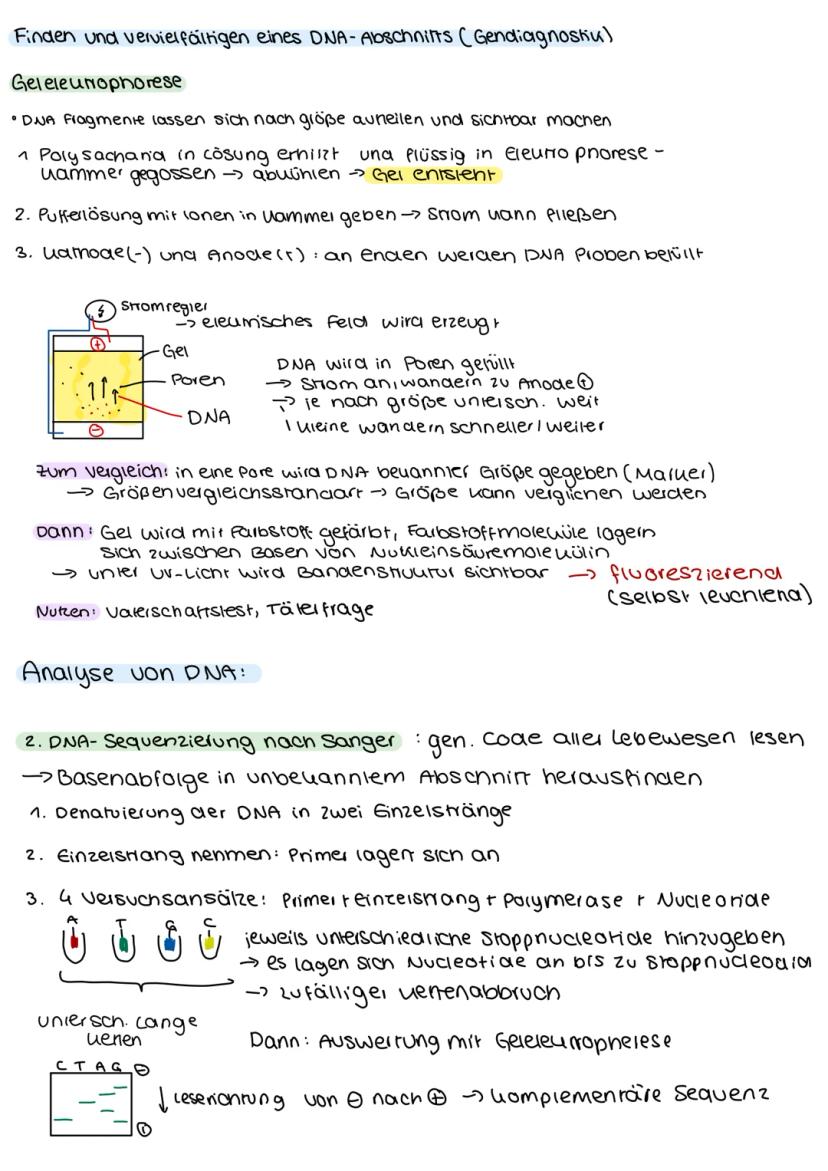 Finden und vervielfältigen eines DNA-Abschnitts (Gendiagnostik)
Gelelektrophorese
• DNA Fragmente lassen sich nach größe aufteilen und sichtbar machen
1 Polysacharid in Lösung erhitzt und flüssig in Elektrophorese-
kammer gegossen → abkühlen → Gel entsteht
2. Pufferlösung mit Ionen in Kammer geben → Strom kann fließen
3. Kathode(-) und Anode(+) : an Enden werden DNA Proben befüllt
Stromregler
→ elektrisches Feld wird erzeugt
+
Gel
Poren
DNA
-
DNA wird in Poren gefüllt
→ Strom an, wandern zu Anode ⊕
→ je nach größe untersch. weit
! kleine wandern schneller/weiter
Zum Vergleich: in eine Pore wird DNA bekannter Größe gegeben (Marker)
→ Größenvergleichsstandart → Größe kann verglichen werden
Dann: Gel wird mit Farbstoff gefärbt, Farbstoffmoleküle lagern
sich zwischen Basen von Nukleinsäuremolekülin
→ unter UV-Licht wird Bandenstruktur sichtbar → fluoreszierend
(selbst leuchtend)
Nutzen: Vaterschaftstest, Täterfrage
Analyse von DNA:
2. DNA-Sequenzierung nach Sanger : gen. Code aller Lebewesen lesen
→ Basenabfolge in unbekanntem Abschnitt herausfinden
1. Denatuierung der DNA in zwei Einzelstränge
2. Einzelstrang nehmen: Primer lagert sich an
3. 4 Versuchsansätze: Primer + einzelstrang + Polymerase + Nucleotide
A T G C
jeweils unterschiedliche Stoppnucleotide hinzugeben
→ es lagen sich Nucleotide an bis zu Stoppnucleotid
→ zufälliger Kettenabbruch
untersch. lange
Ketten
Dann: Auswertung mit Gelelektrophelese
C T A G ⊖
↓ Leserichtung von ⊖ nach ⊕ → komplementäre Sequenz
⊕